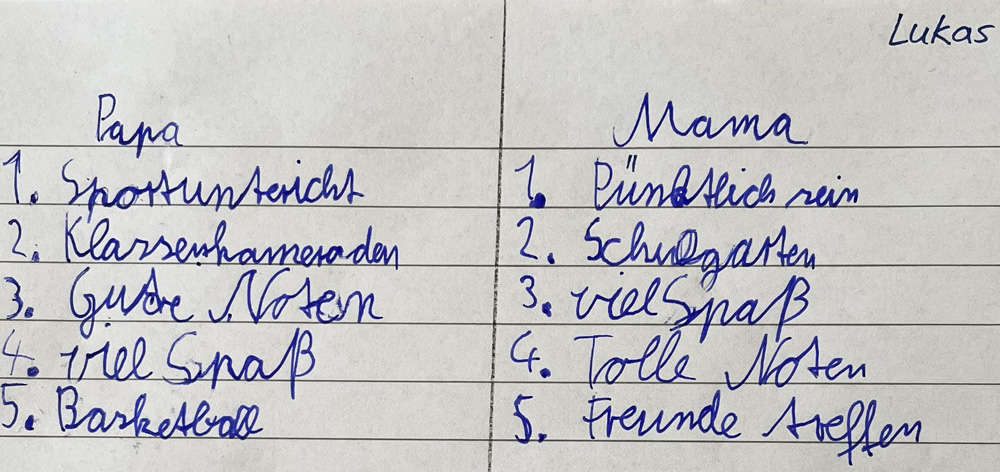 Lukas
Papa
1. Sportunterricht
2. Klassenkameraden
3. Gute Noten
4. viel Spaß
5. Basketball
Mama
1. Pünktlich sein
2. Schulgarten
3. viel Spaß
4. Tolle Noten
5. Freunde treffen